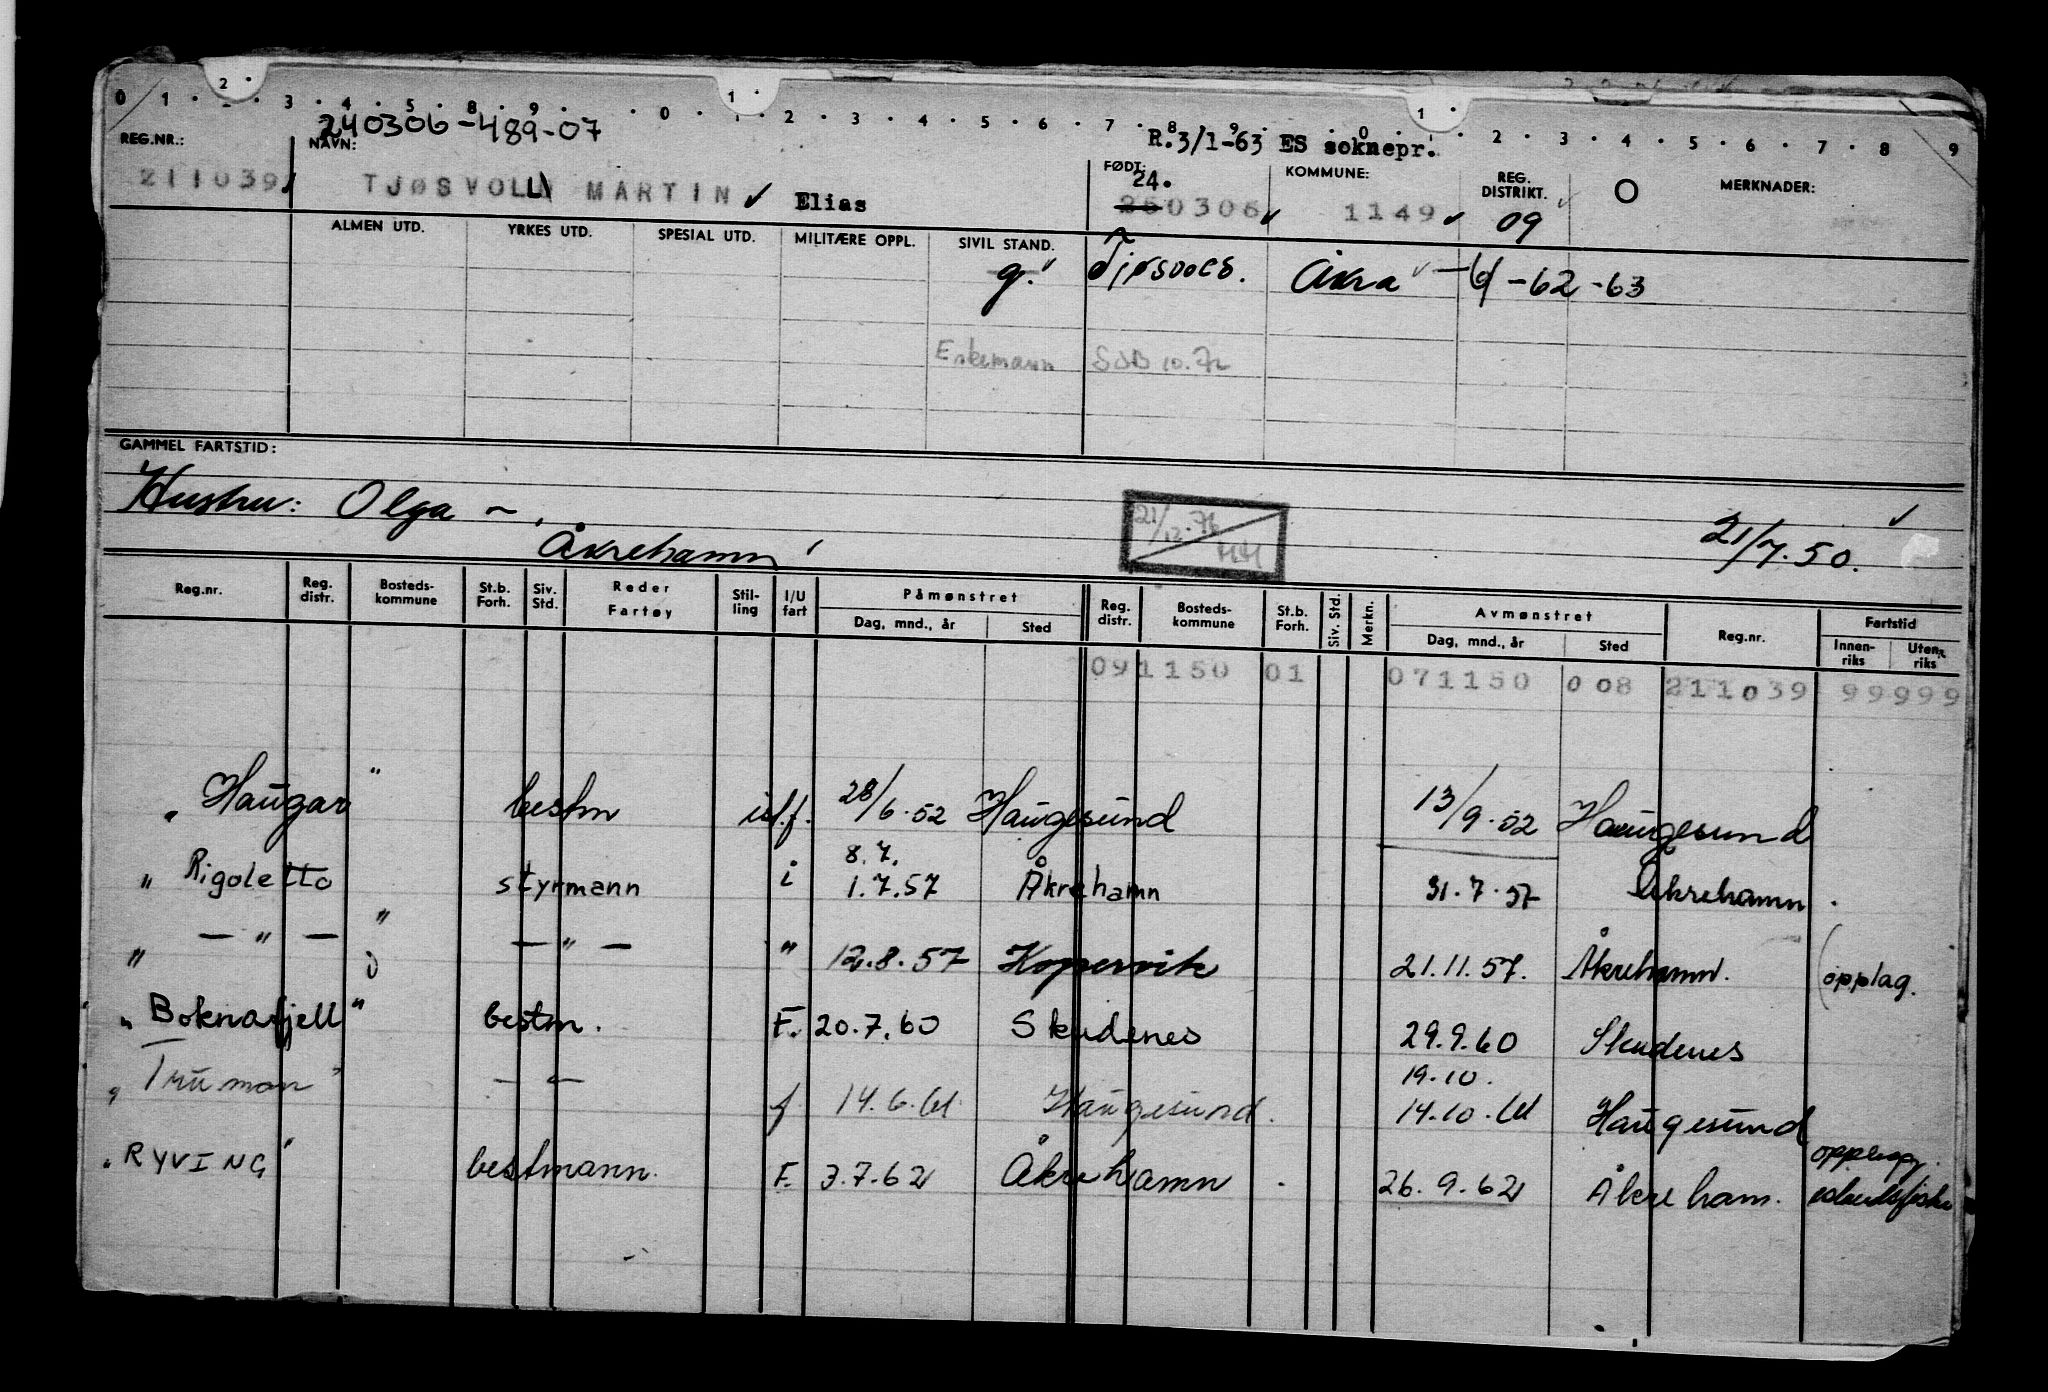 0 1 2 3 4 5 8 9 0 1 2 3 4 5 6 7 8 9 0 1 2 3 4 5 6 7 8 9
240306-489-07
R.3/1-63 ES soknepr.
REG.NR.: NAVN: FØDT: KOMMUNE: REG. DISTRIKT. O MERKNADER:
24.
211039 TJØSVOLL MARTIN Elias 250306 1149 09
ALMEN UTD. YRKES UTD. SPESIAL UTD. MILITÆRE OPPL. SIVIL STAND.
g. Åkra -61 -62 -63
10.72
GAMMEL FARTSTID:
Hustru: Olga ~.
Åkrehamn
21/12.76
21/7.50.
Reg.nr. Reg. distr. Bosteds-kommune St.b. Forh. Siv. Std. Reder Fartøy Stil-ling I/U fart Påmønstret Reg. distr. Bosteds-kommune St.b. Forh. Siv. Std. Merkn. Avmønstret Reg.nr. Fartstid
Dag, mnd., år Sted Dag, mnd., år Sted Innen-riks Uten-riks
091150 01 071150 008 211039 99999
" Haugar " bestm 28/6.52 Haugesund 13/9.52 Haugesund
8.7.
" Rigoletto styrmann i 1.7.57 Åkrehamn 31.7.57 Åkrehamn.
" — " — " — " — " 12.8.57 Kopervik 21.11.57. Åkrehamn. (opplag.
" Boknafjell " bestm. F. 20.7.60 Skudenes 29.9.60 Skudenes
19.10.
" Truman " — " — f. 14.6.61 Haugesund. 14.10.61 Haugesund
" RYVING " bestmann. F. 3.7.62 Åkrehamn. 26.9.62 Åkreham.